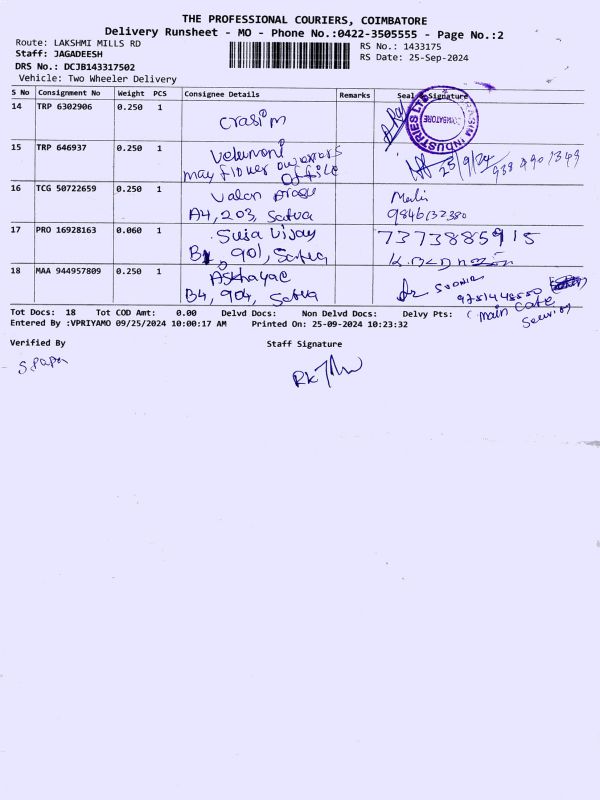 THE PROFESSIONAL COURIERS, COIMBATORE
Delivery Runsheet - MO - Phone No.:0422-3505555 - Page No.:2
Route: LAKSHMI MILLS RD
RS No.: 1433175
Staff: JAGADEESH
RS Date: 25-Sep-2024
DRS No.: DCJB143317502
Vehicle: Two Wheeler Delivery
S No Consignment No Weight PCS Consignee Details Remarks Seal & Signature
14 TRP 6302906 0.250 1
INDUSTRIES
COIMBATORE
15 TRP 646937 0.250 1
may flower
office
25/9/24
16 TCG 50722659 0.250 1
A4, 203, Satva
17 PRO 16928163 0.060 1
Suja Vijay
7373885915
901, Satva
18 MAA 944957809 0.250 1
B4, 904, Satva
main Gate
Tot Docs: 18 Tot COD Amt: 0.00 Delvd Docs: Non Delvd Docs: Delvy Pts:
Entered By :VPRIYAMO 09/25/2024 10:00:17 AM Printed On: 25-09-2024 10:23:32
Verified By Staff Signature